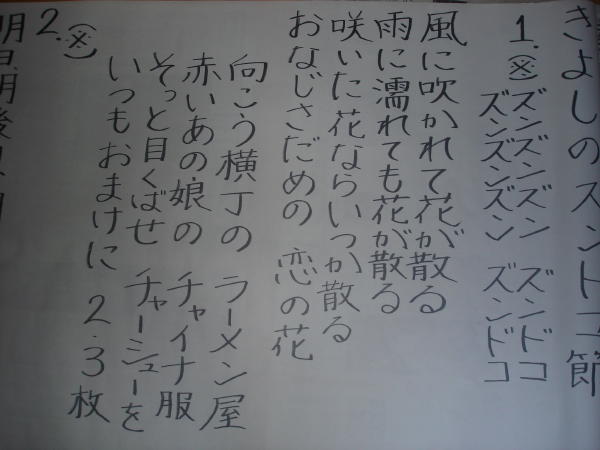 きよしのズンドコ節
1.(※)ズンズンズン ズンドコ
ズンズンズン ズンドコ
風に吹かれて花が散る
雨に濡れても花が散る
咲いた花ならいつか散る
おなじさだめの 恋の花
向こう横丁の ラーメン屋
赤いあの娘の チャイナ服
そっと目くばせ チャーシューを
いつもおまけに 2.3枚
2.(※)
明日、明後日、明